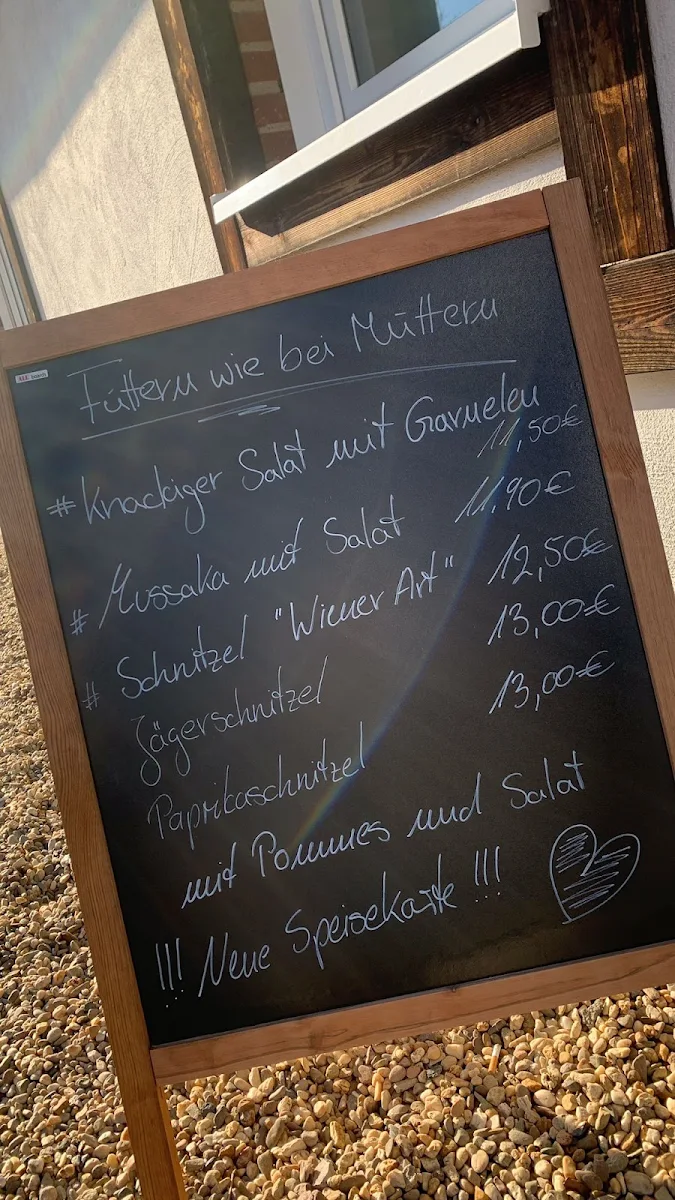 Füttern wie bei Müttern
# Knackiger Salat mit Garnelen
11,50€
# Mussaka mit Salat 11,90€
# Schnitzel "Wiener Art" 12,50€
Jägerschnitzel 13,00€
Paprikaschnitzel 13,00€
mit Pommes und Salat
!!! Neue Speisekarte !!!